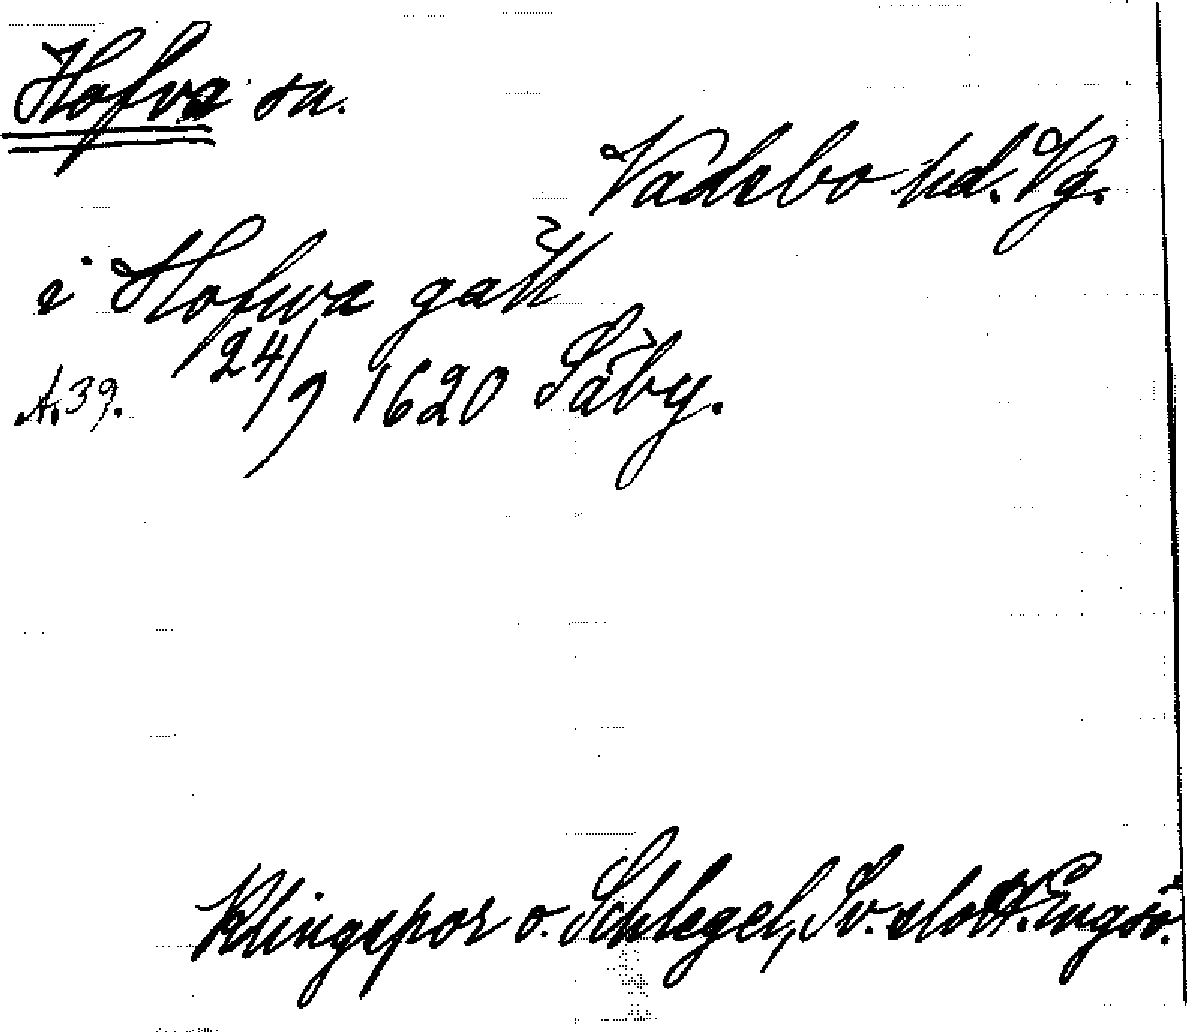 Hofva sn.
Vadsbo hd. Vg.
i Hofwa gäll
24/9 1620 Säby.
A. 39.
Klingspor o. Schlegel, Sv. slott. Engsö.